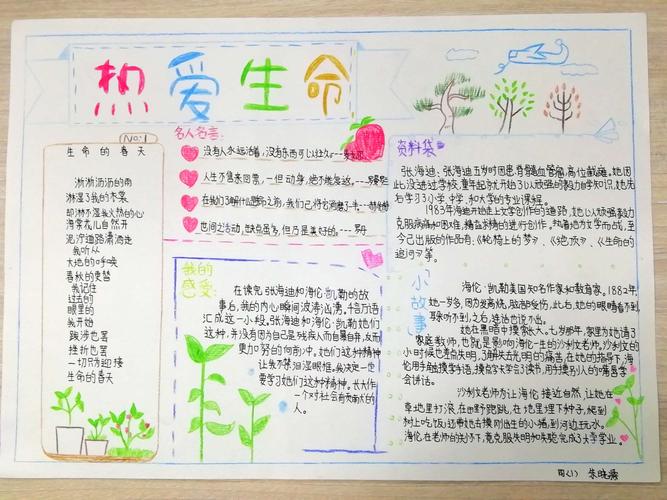 热爱生命
No:1
生命的春天
淅淅沥沥的雨
淋湿了我的衣裳
却淋不湿我火热的心
海棠花自然开
泥泞道路潇洒走
我听从
大地的呼唤
春秋的更替
我记住
过去的
眼里的
我开始
跋涉也罢
挫折也罢
一切只为迎接
生命的春天
名人名言:
没有人永远活着,没有东西可以经久
人生不售来回票,一但动身,绝不能复返。
在我们了解什么是生命之前,我们已将它消磨了一半
世间之活动,缺点虽多,但乃是美好的。
我的
感受:
在读完张海迪和海伦·凯勒的故
事后,我的内心瞬间波涛汹涌,千言万语
汇成这一小段,张海迪和海伦·凯勒她们
这种,并没有因为自己是残疾人而自暴自弃,反而
更加努力的向前冲。她们这种精神
让我不禁泪湿眼框。我决定一定
要学习她们这种精神。长大作
一个对社会有贡献的
人。
资料袋
张海迪:张海迪五岁时因患脊髓血管瘤,高位截瘫,她因
此没进过学校,童年起就开始以顽强的毅力自学知识,她先
后学习了小学、中学、和大学的专业课程。
1983年海迪开始走上文学创作的道路,她以顽强毅力
克服病痛和困难,精益求精的进行创作,执着地为文学而战,至
今已出版的作品有:《轮椅上的梦》、《绝顶》、《生命的
追问》等。
小故事
海伦·凯勒美国知名作家和教育家,1882年,
她一岁多,因为发高烧,脑部受伤,此后,她的眼睛看不到,
耳听不到,之后,连话也说不出。
她在黑暗中摸索长大。七岁那年,家里为她请了
家庭教师,也就是影响海伦一生的沙利文老师,沙利文的
小时候也差点失明,了解失去光明的痛苦,在她的指导下,海
伦用手触摸学手语,摸点字学会了读书,用手摸别人的嘴唇学
会讲话。
沙利文老师为让海伦接近自然,让她在
草地里打滚,在田野跑跳,在地里埋下种子,爬到
树上吃饭;还带她去摸刚出生的小猪,到河边玩水。
海伦在老师的关怀下,竟克服失明和失聪,完成了大学学业。
四(1) 朱晓